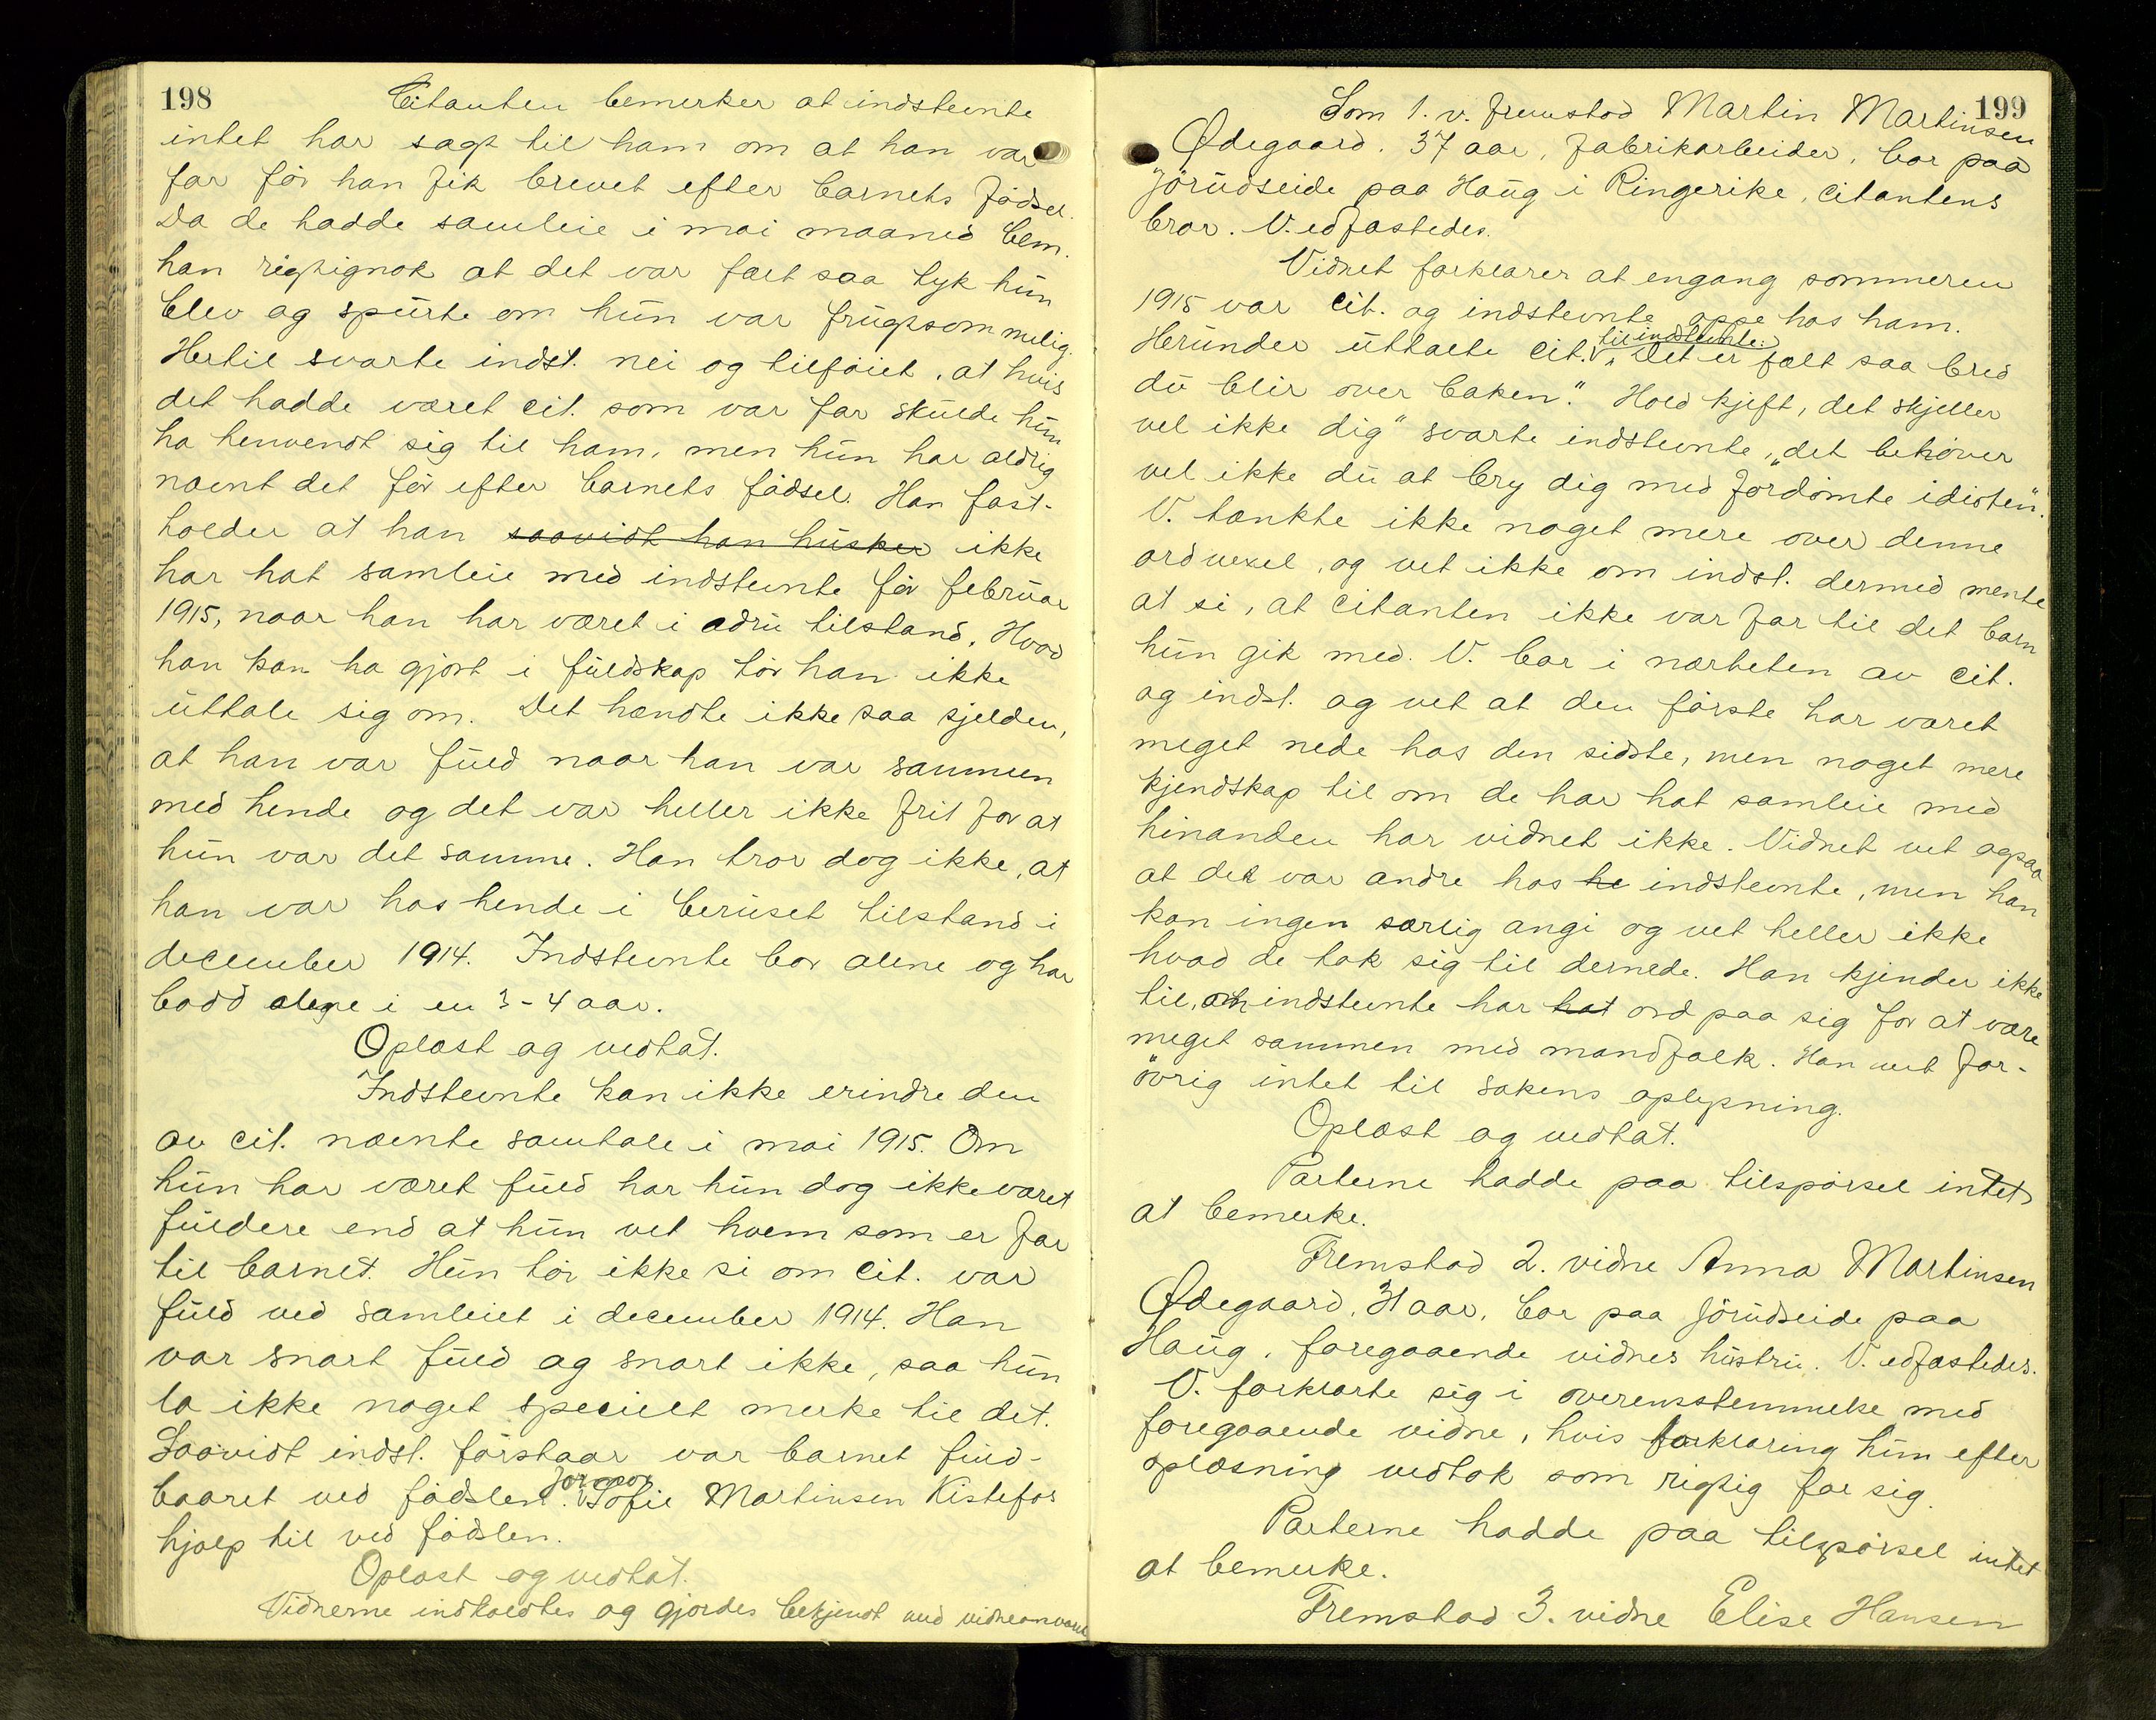 198
Citanten bemerker at indstevnte
intet har sagt til ham om at han var
far før han fik brevet efter barnets fødsel.
Da de hadde samleie i mai maaned bem.
han rigtignok at det var fælt saa tyk hun
blev og spurte om hun var frugtsommelig.
Hertil svarte indst. nei og tilføiet, at hvis
det hadde været cit. som var far skulde hun
ha henvendt sig til ham, men hun har aldrig
nævnt det før efter barnets fødsel. Han fast-
holder at han saavidt han husker ikke
har hat samleie med indstevnte før februar
1915, naar han har været i ædru tilstand. Hvad
han kan ha gjort i fuldskap tør han ikke
uttale sig om. Det hændte ikke saa sjelden,
at han var fuld naar han var sammen
med hende og det var heller ikke frit for at
hun var det samme. Han tror dog ikke, at
han var hos hende i beruset tilstand i
december 1914. Indstevnte bor alene og har
bodd alene i en 3-4 aar.
Oplæst og vedtat.
Indstevnte kan ikke erindre den
av cit. nævnte samtale i mai 1915. Om
hun har været fuld har hun dog ikke været
fuldere end at hun vet hvem som er far
til barnet. Hun tør ikke si om cit. var
fuld ved samleiet i december 1914. Han
var snart fuld og snart ikke, saa hun
la ikke noget specielt merke til det.
Saavidt indst. forstaar var barnet fuld-
baaret ved fødslen. Sofie Martinsen Kistefos
hjalp til ved fødslen.
Oplæst og vedtat.
Vidnerne indkaldtes og gjordes bekjendt med vidneansvaret
199
Som 1. v. fremstod Martin Martinsen
Ødegaard. 37 aar, fabrikarbeider, bor paa
Jørudseide paa Haug i Ringerike, citantens
bror. V. edfæstedes.
Vidnet forklarer at engang sommeren
1915 var cit. og indstevnte oppe hos ham.
til indstevnte:
Herunder uttalte cit. „Det er fælt saa bred
du blir over baken." Hold kjeft, det skjeller
vel ikke dig" svarte indstevnte, „det behøver
vel ikke du at bry dig med fordømte idioten".
V. tænkte ikke noget mere over denne
ordvexel, og vet ikke om indst. dermed mente
at si, at citanten ikke var far til det barn
hun gik med. V. bor i nærheten av cit.
og indst. og vet at den første har været
meget nede hos den sidste, men noget mere
kjendskap til om de har hat samleie med
hinanden har vidnet ikke. Vidnet vet ogsaa
at det var andre hos he indstevnte, men han
kan ingen særlig angi og vet heller ikke
hvad de tok sig til dernede. Han kjender ikke
til, om indstevnte har hat ord paa sig for at være
meget sammen med mandfolk. Han vet for-
øvrig intet til sakens oplysning.
Oplæst og vedtat.
Parterne hadde paa tilspørsel intet
at bemerke.
Fremstod 2. vidne Anna Martinsen
Ødegaard, 31 aar, bor paa Jørudseide paa
Haug, foregaaende vidnes hustru. V. edfæstedes.
V. forklarte sig i overensstemmelse med
foregaaende vidne, hvis forklaring hun efter
oplæsning vedtok som rigtig for sig.
Parterne hadde paa tilspørsel intet
at bemerke.
Fremstod 3. vidne Elise Hansen